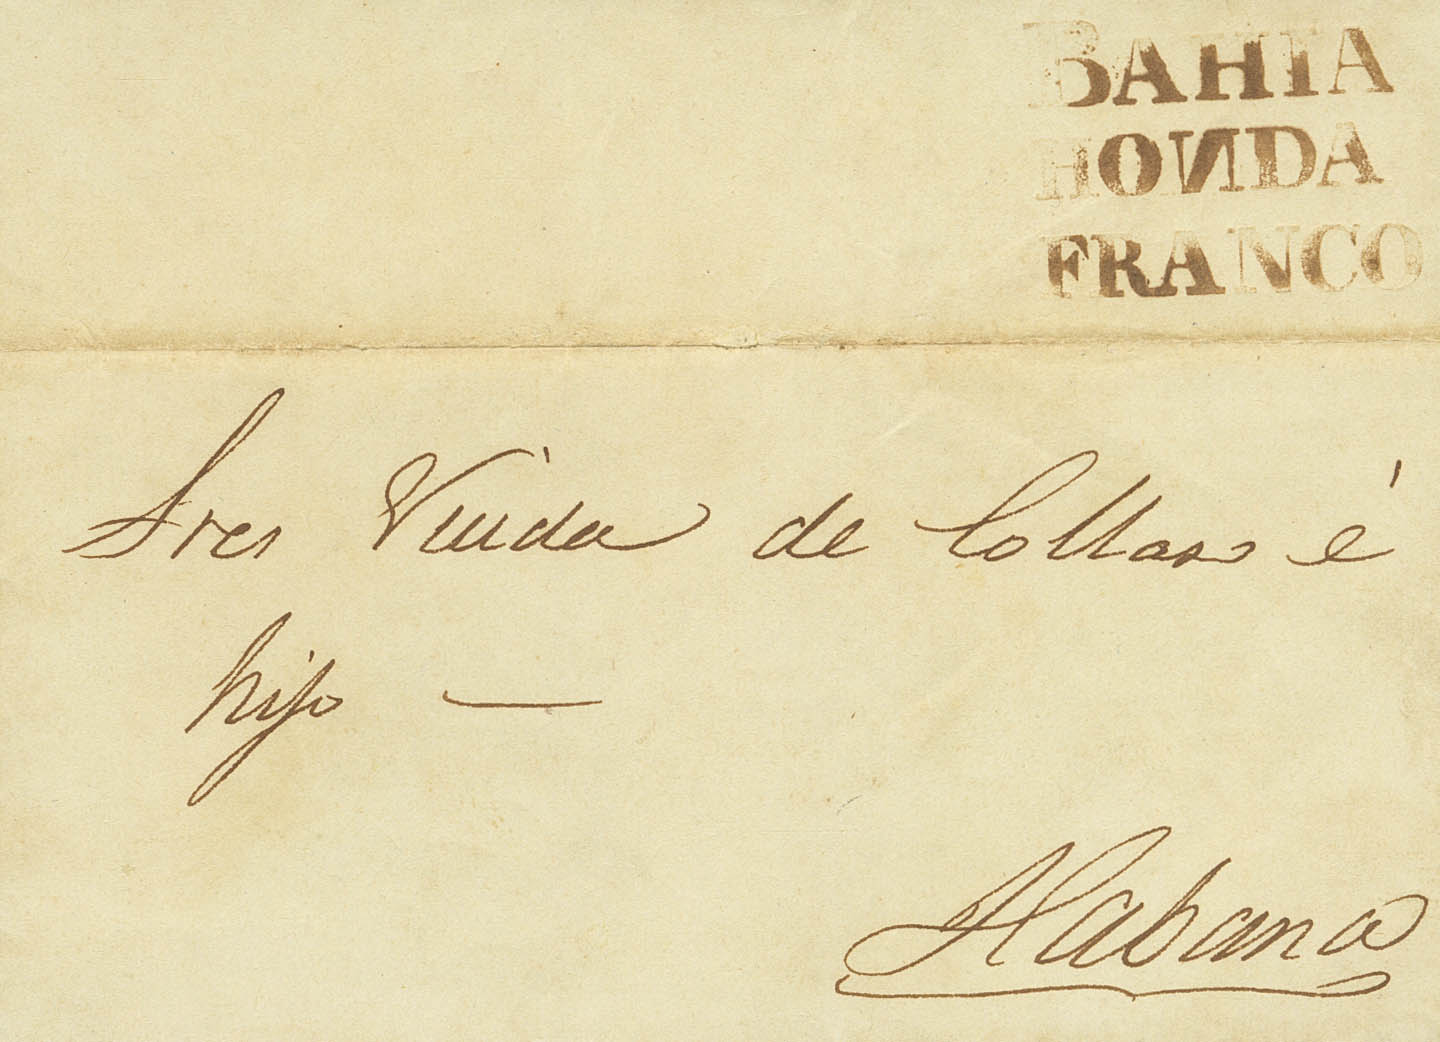 BAHIA
HOИDA
FRANCO
Sres Viuda de Collaso é
hijo —
Habana